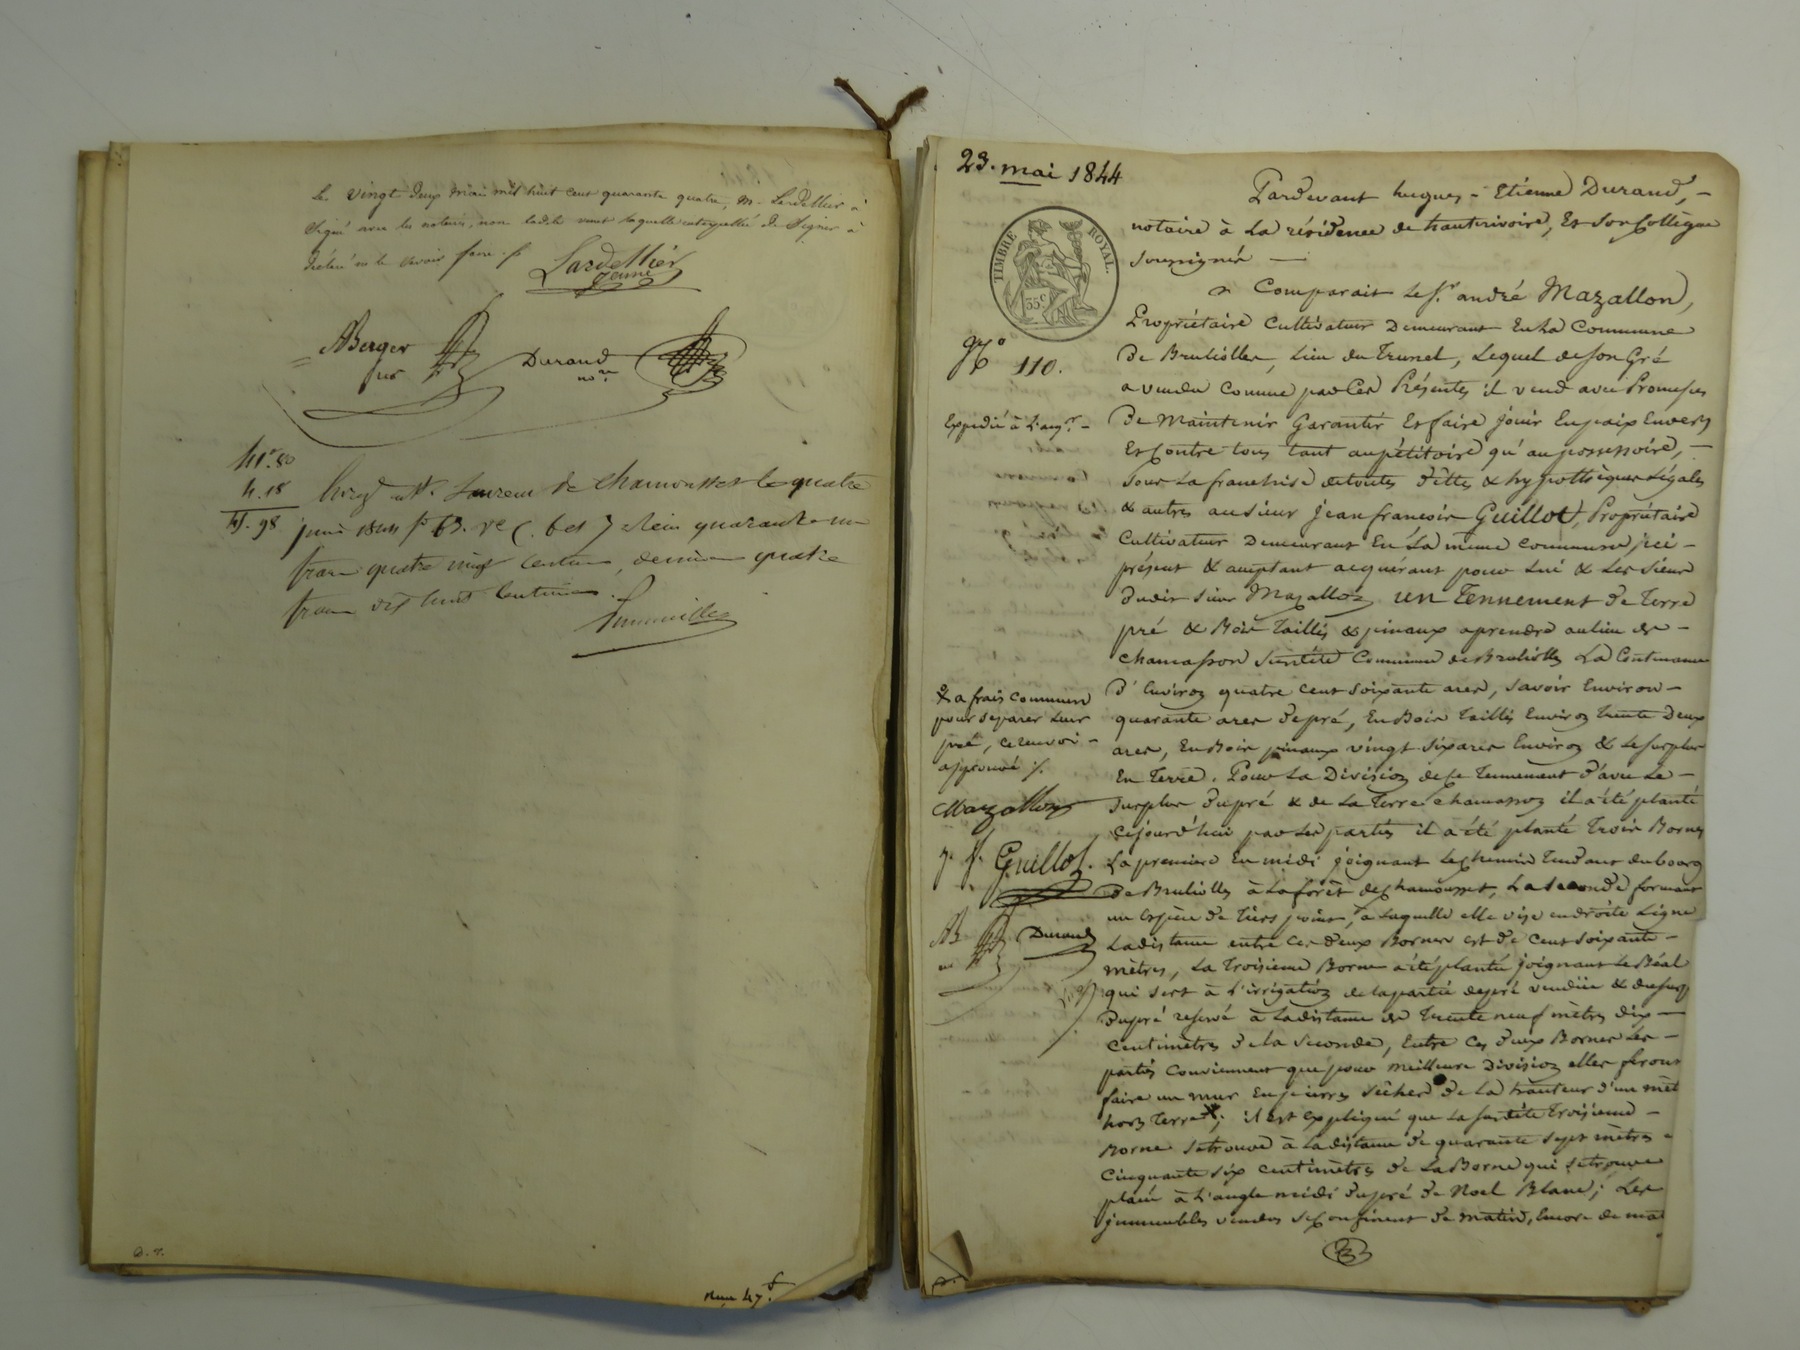 Le vingt deux mai mil huit cent quarante quatre, M. Lardellier a
signé avec les notaires, non ladite laquelle interpellée de signer a
déclaré ne le savoir faire ./.
Lardellier
jeune
ABerger
Durand
nore
41f. 80
4. 18
45. 98
Enregé à St Laurent de Chamousset le quatre
juin 1844 fo 63. vo C. 6 et 7 reçu quarante un
francs quatre vingt centimes, décime quatre
francs dix huit centimes.
47
23. mai 1844
TIMBRE ROYAL.
35c
No 110.
Expédié à L'acqr. -
Pardevant hugues - Etienne Durand, -
notaire à La résidence de hauterivoire, Et Son Collègue
soussignés —
Comparait le Sr. andré Mazallon,
Propriétaire Cultivateur Demeurant En La Commune
de Brullioles, Lieu du Trunel, Lequel de son Gré
a vendu Comme par Ces Présentes il vend avec Promesses
De Maintenir Garantir Et faire jouir En paix Envers
Et Contre tous tant au pétitoire qu'au possessoire, -
Sous La franchise de toutes dettes & hypothèques Légales
& autres au sieur jean francois Guillot, Propriétaire
Cultivateur Demeurant En La même Commune ici -
présent & acceptant acquérant pour Lui & Les Siens
dudit Sieur Mazallon un Tennement de Terre
pré & Bois Taillis & pinaux a prendre au lieu de -
chamasson Susdite Commune de Brullioles La Contenance
d'Environ quatre cent soixante ares, savoir Environ -
quarante ares de pré, En Bois Taillis Environ trente Deux
ares, En Bois pinaux vingt six ares Environ & Le surplus
En Terre. Pour La Division de ce Tennement d'avec Le -
surplus du pré & de La Terre chamasson il a été planté
cejourd'hui par Les parties il a été planté Trois Bornes
La premiere En midi joignant Le chemin Tendant du bourg
de Brullioles à La forêt de chamousset, La seconde formant
un Espèce de tiers point, à Laquelle elle vise en droite Ligne
La distance entre Ces deux Bornes est de Cent soixante -
mètres, La Troisieme Borne a été plantée joignant Le Béal
qui sert à L'irrigation de la partie de pré vendue & du surp
du pré réservé à La distance de trente neuf mètres dix —
Centimètres de La Seconde, Entre Ces deux Bornes Les -
parties Conviennent que pour meilleure Division elles feront
faire un mur En pierres sèches de La hauteur d'un mèt
hors Terre ; il est Expliqué que La susdite Troisieme -
Borne se trouve à La distance de quarante sept mètres -
Cinquante six centimètres de La Borne qui se trouve
à L'angle midi du pré de Noel Blanc ; Les
immeubles vendus se Confinent de Matin, Encore de mat
& a frais Communs
pour séparer Leur
pré, ce renvoi -
approuvé ./.
Mazallon
j. f. Guillot.
AB
Durand